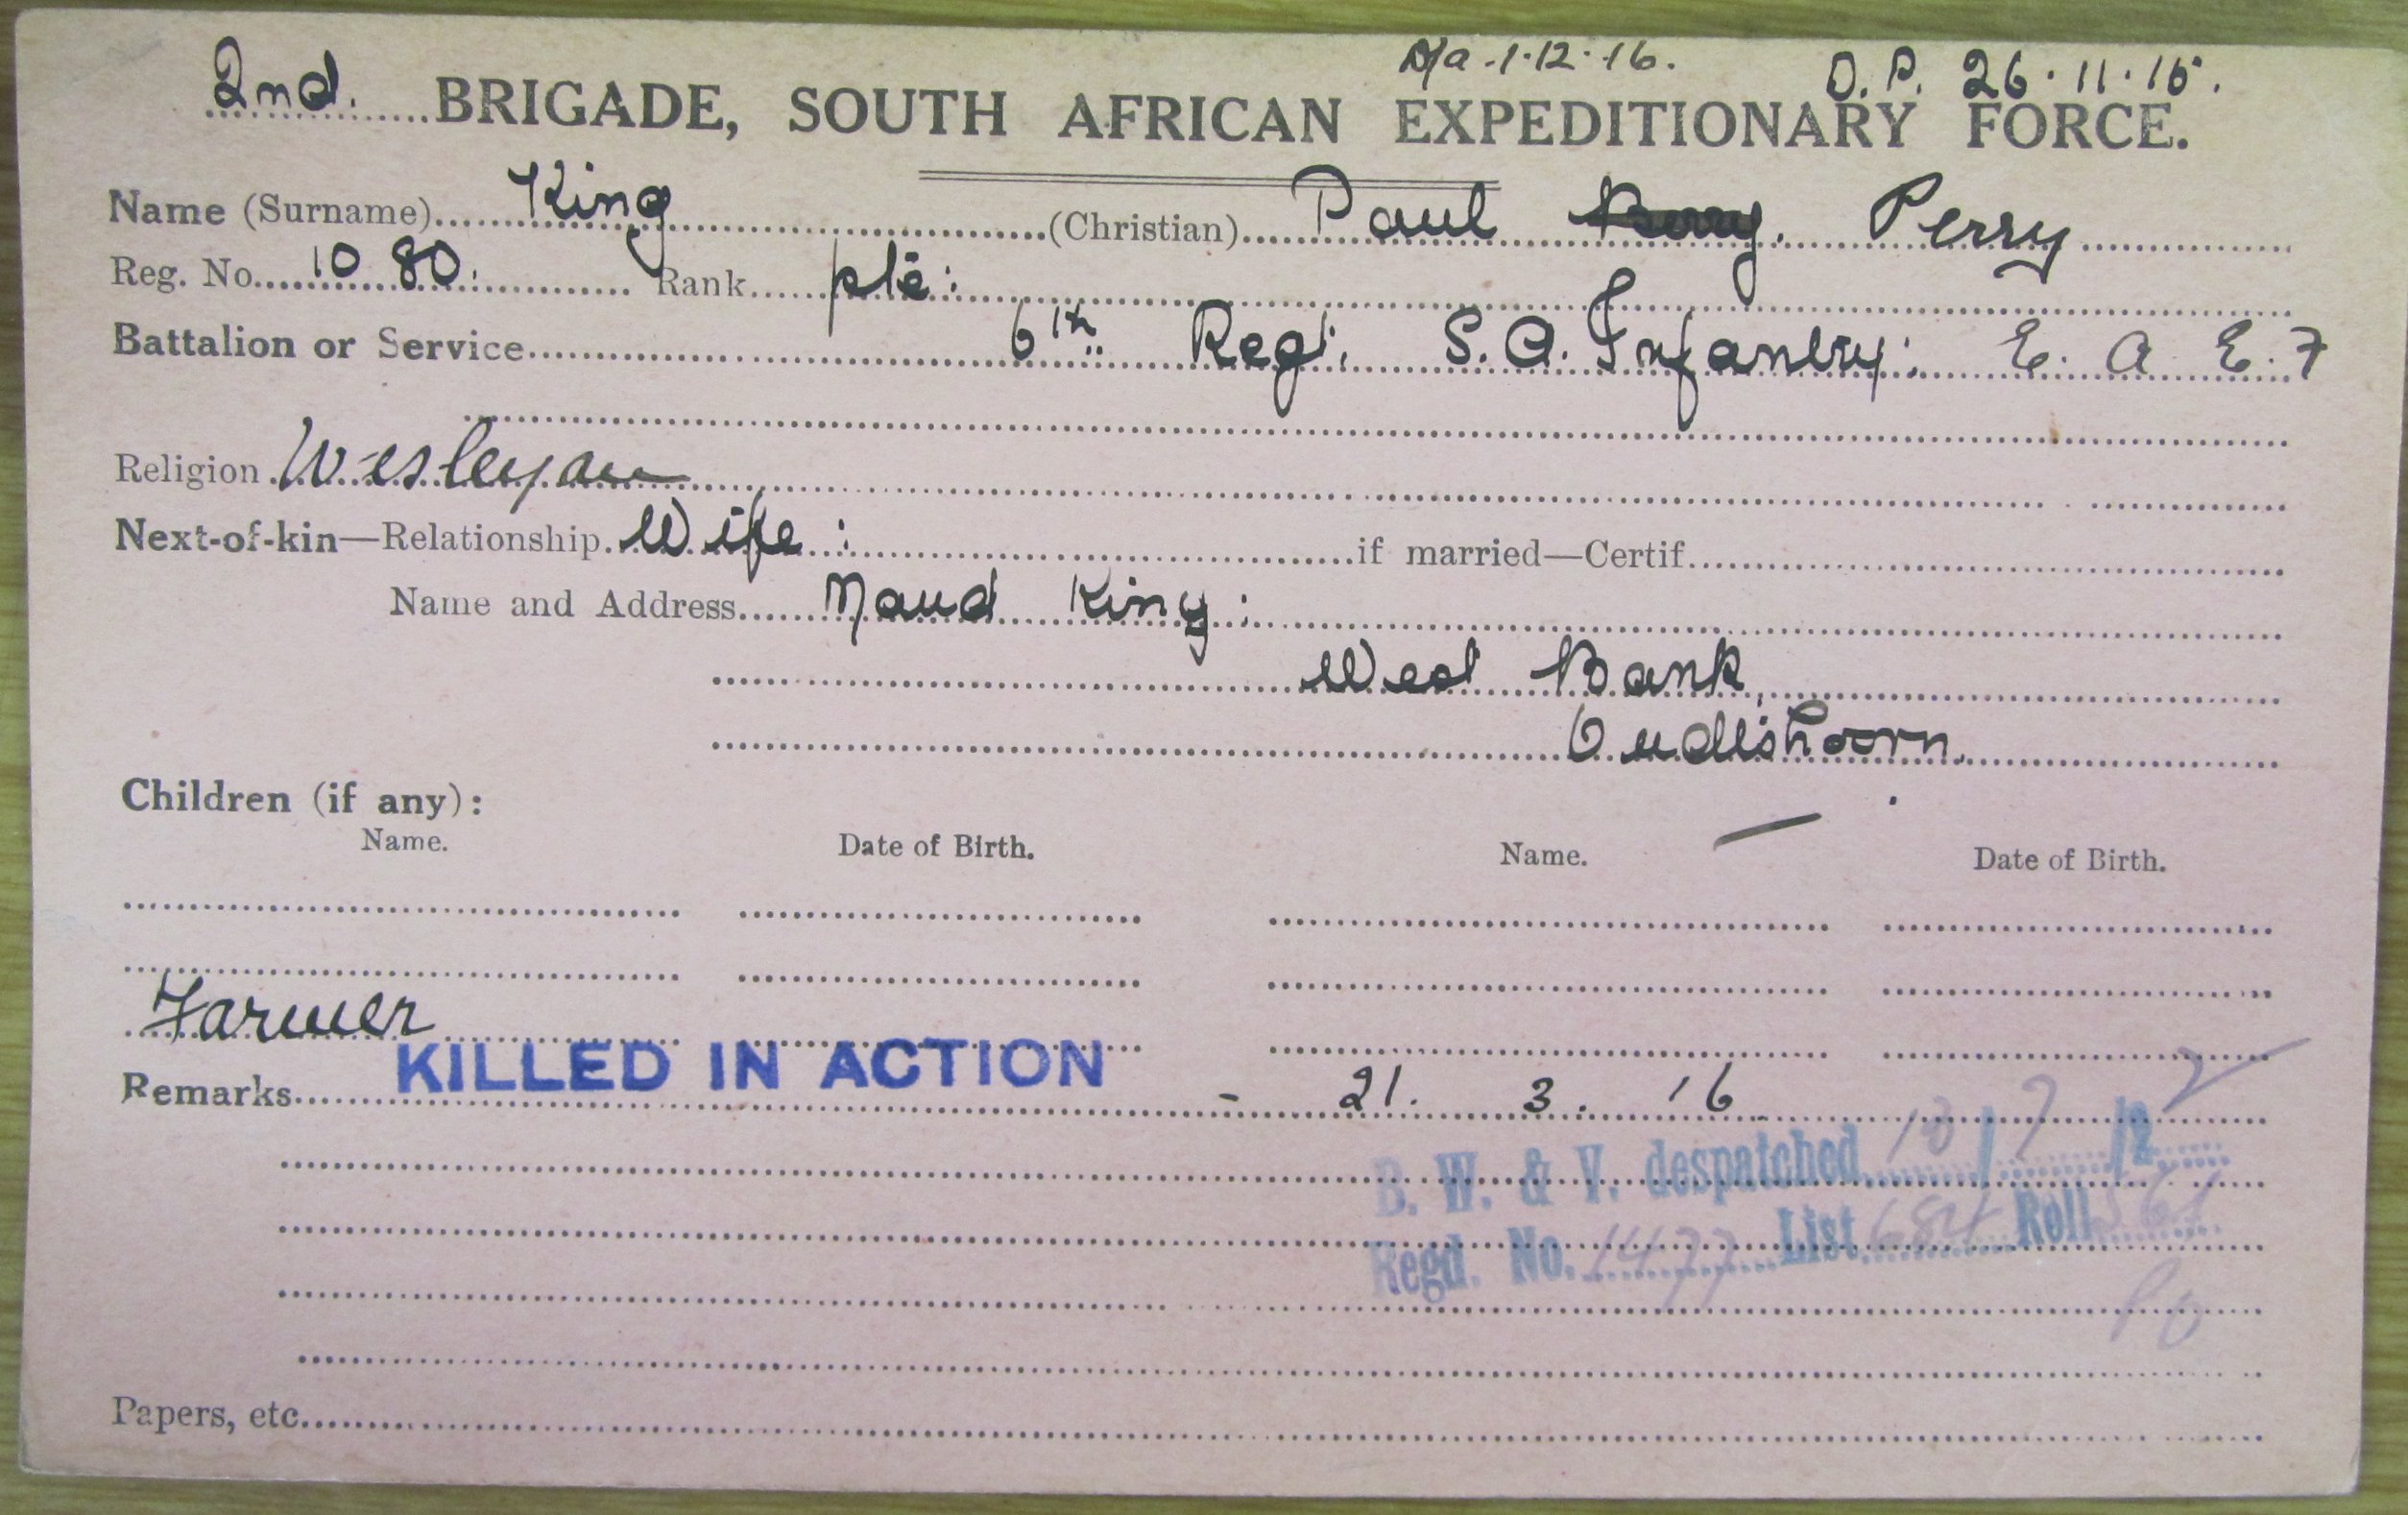 D/a. 1.12.16. O.P. 26.11.15.
2nd. BRIGADE, SOUTH AFRICAN EXPEDITIONARY FORCE.
Name (Surname) King (Christian) Paul Perry
Reg. No. 1080. Rank pte:
Battalion or Service 6th Regt. S.A. Infantry: E. A. E. F
Religion Wesleyan
Next-of-kin—Relationship Wife: if married—Certif.
Name and Address Maud King:
West Bank,
Oudtshoorn.
Children (if any):
Name. Date of Birth. Name. Date of Birth.
Farmer
Remarks KILLED IN ACTION - 21. 3. 16
B. W. & V. despatched
Regd. No. 1477 List 684 Roll
Papers, etc.